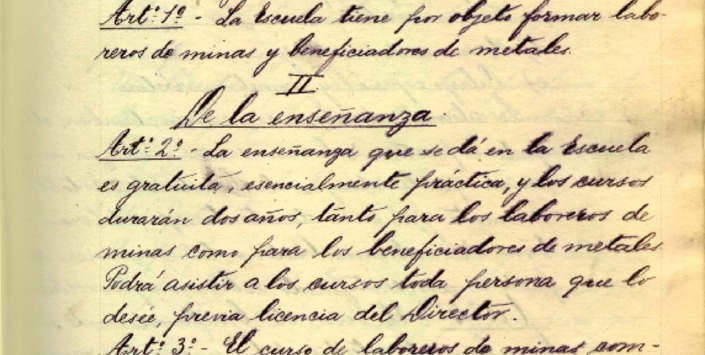 Art.º 1º - La Escuela tiene por objeto formar labo-
reros de minas y beneficiadores de metales.
II
De la enseñanza
Art.º 2º - La enseñanza que se dá en la Escuela
es gratuita, esencialmente práctica, y los cursos
durarán dos años, tanto para los laboreros de
minas como para los beneficiadores de metales
Podrá asistir a los cursos toda persona que lo
desée, previa licencia del Director.
Art.º 3º - El curso de laboreros de minas com-